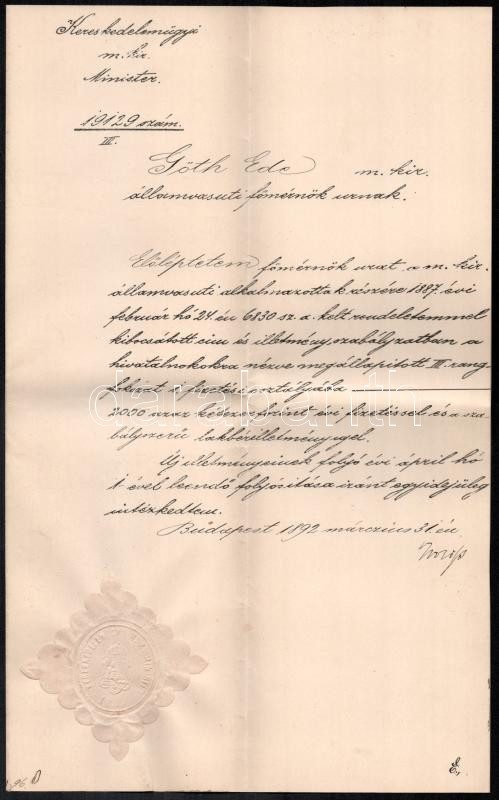 Kereskedelemügyi
m. kir.
Minister.
19129 szám.
III.
Góth Ede m. kir.
államvasuti főmérnök urnak.
Előléptetem főmérnök urat a m. kir.
államvasuti alkalmazottak részére 1887. évi
február hó 24 én 6830 sz. a. kelt rendeletemmel
kibocsátott cim és illetményszabályzatban a
hivatalnokokra nézve megállapitott III. rang-
fokozat i fizetési osztályába
2000 azaz kétezer forint évi fizetéssel és a sza-
bályszerű lakbérilletménynyel.
Uj illetményeinek folyó évi április hó
1 ével leendő folyósitása iránt egyidejüleg
intézkedtem.
Budapest 1892 márczius 31 én
darabanth
96